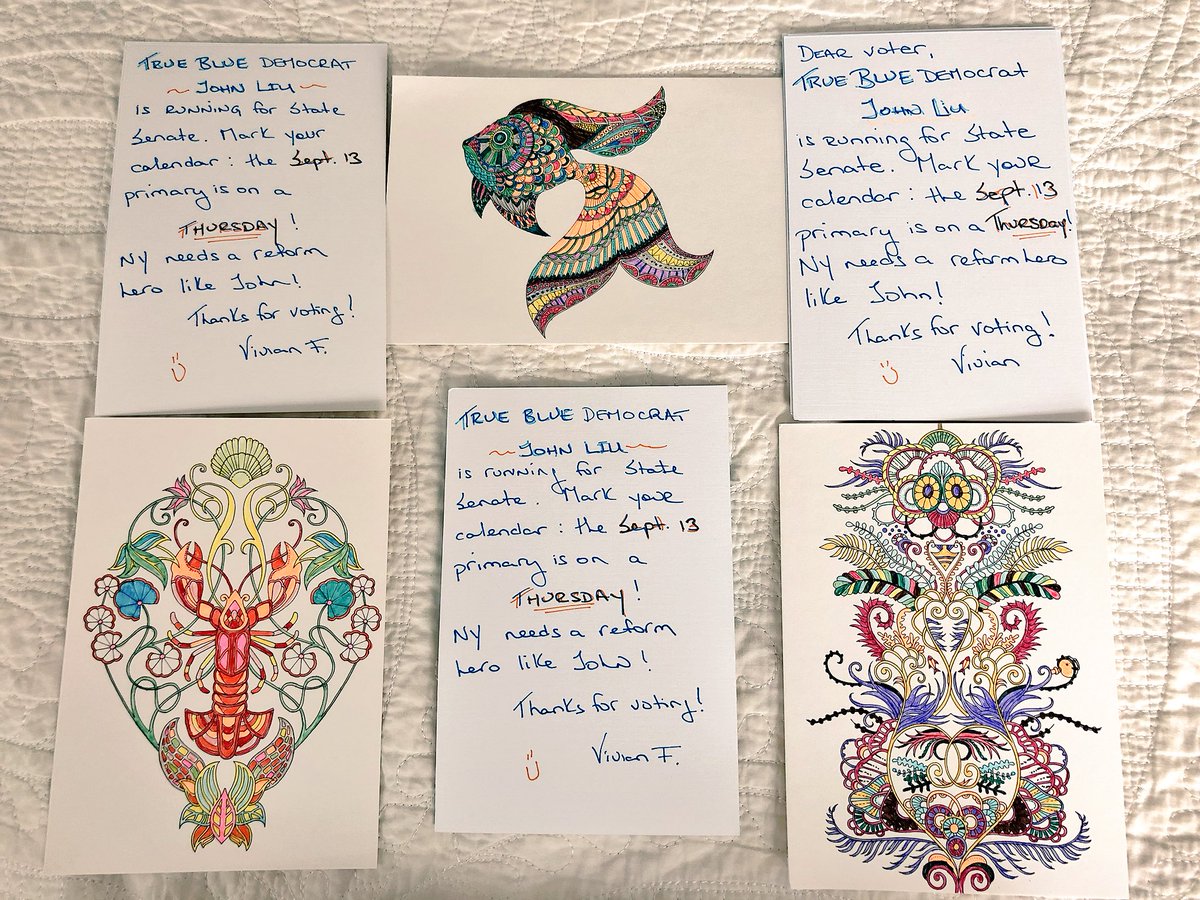 TRUE BLUE DEMOCRAT
~ JOHN LIU ~
is RUNNING for State
Senate. Mark your
calendar: the Sept. 13
primary is on a
THURSDAY!
NY needs a reform
hero like John!
Thanks for voting!
Vivian F.
DEAR voter,
TRUE BLUE DEMOCRAT
John Liu
is running for State
Senate. Mark your
calendar: the Sept. 13
primary is on a THURSDAY!
NY needs a reform hero
like John!
Thanks for voting!
Vivian
TRUE BLUE DEMOCRAT
~ JOHN LIU ~
is running for State
Senate. Mark your
calendar: the Sept. 13
primary is on a
THURSDAY!
NY needs a reform
hero like John!
Thanks for voting!
Vivian F.